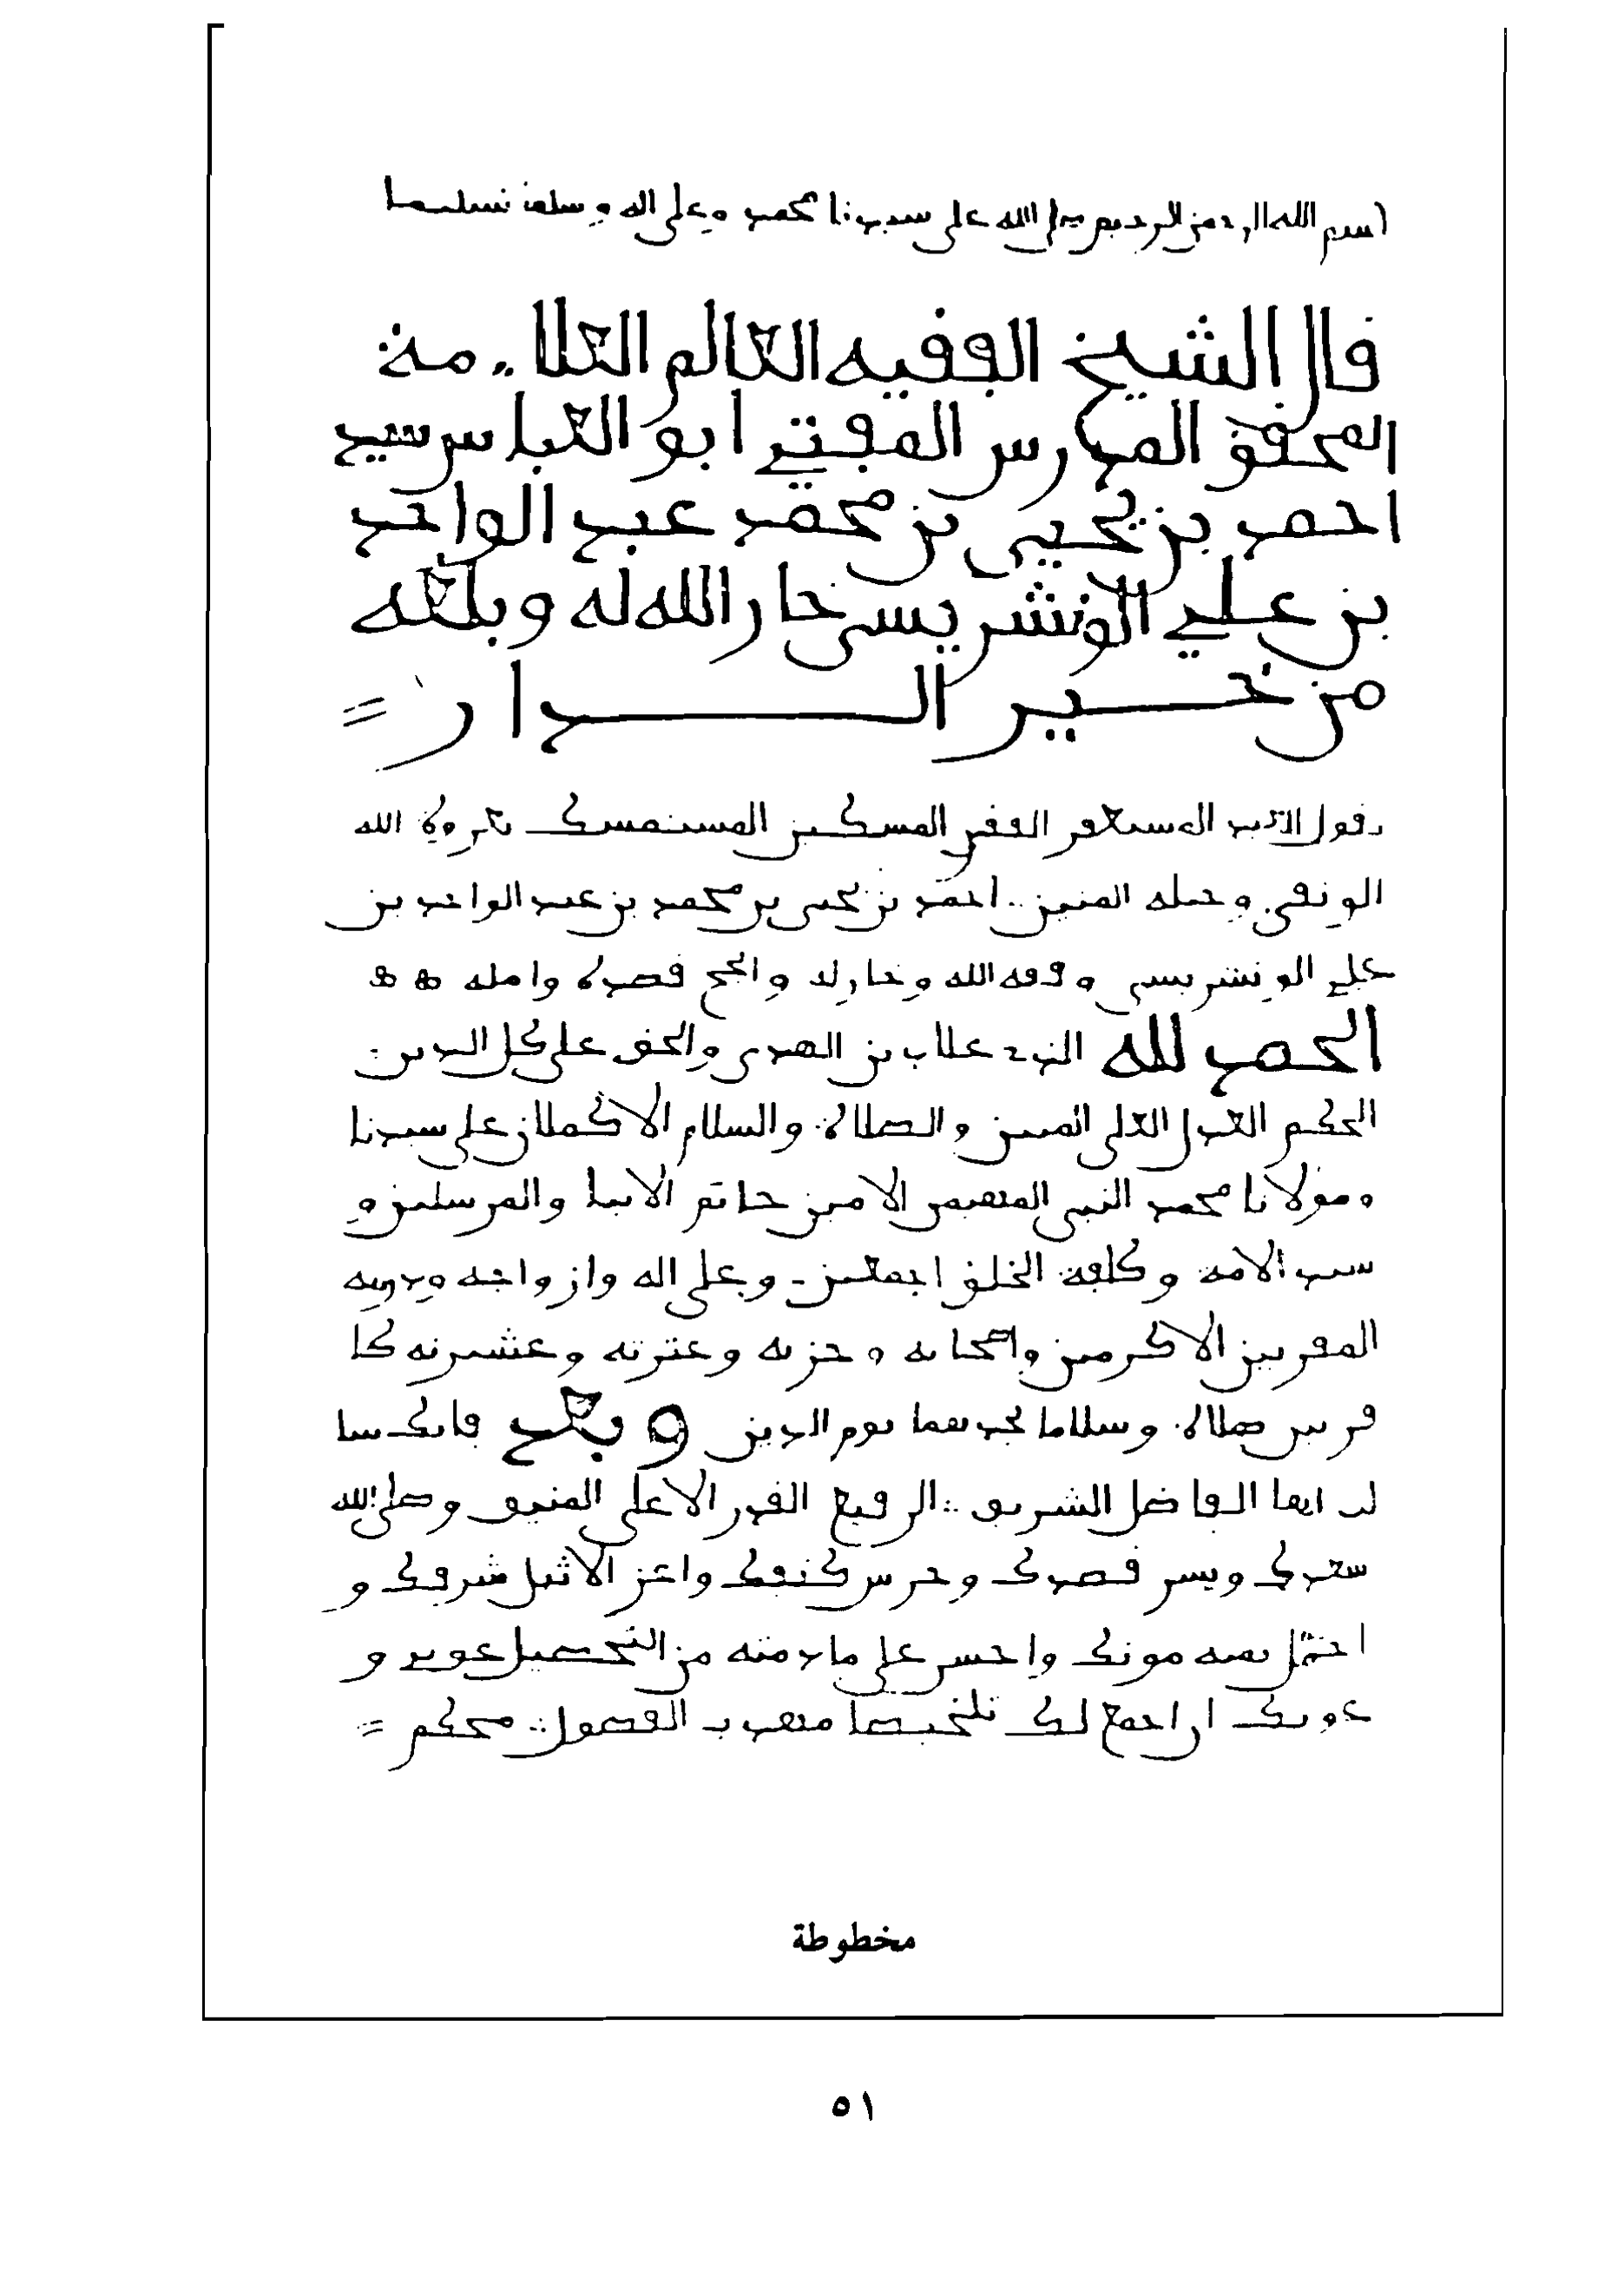 بسم الله الرحمن الرحيم صلى الله على سيدنا محمد وعلى اله وسلم تسليما
قال الشيخ الفقيه العالم العلامة
المحقق المدارس المفتي ابو العباس سيد
احمد بن يحيى بن محمد عبد الواحد
بن علي الونشريسي خار الله له وبلغه
من خير الدار
يقول العبد المستغفر الفقير المسكين المستمسك بعروة الله
الوثقى وحبله المتين احمد بن يحيى بن محمد بن عبد الواحد بن
علي الونشريسي وفقه الله وخار له وانجح قصده وامله هـ هـ
الحمد لله الذي علا دين الهدى والحق على كل الدين
الحكم العدل العلي المبين والصلاة والسلام الاكملان على سيدنا
ومولانا محمد النبي المصطفى الامين خاتم الانبيا والمرسلين و
سيد الامة وكافة الخلق اجمعين وعلى اله وازواجه وذريته
المقربين الاكرمين واصحابه وحزبه وعترته وعشيرته
صلاة وسلاما نجدهما يوم الدين وبعد فانك سا
لت ايها الفاضل الشريف الرفيع القدر الاعلى المنيف وصل الله
سعدك ويسر قصدك وحرس كنفك واعز الاثيل شرفك و
مونك واحسن على ما رمته من التحصيل عونى و
عونك ان اجمع لك تلخيصا مهذب الفصول محكم
مخطوطة
٥١